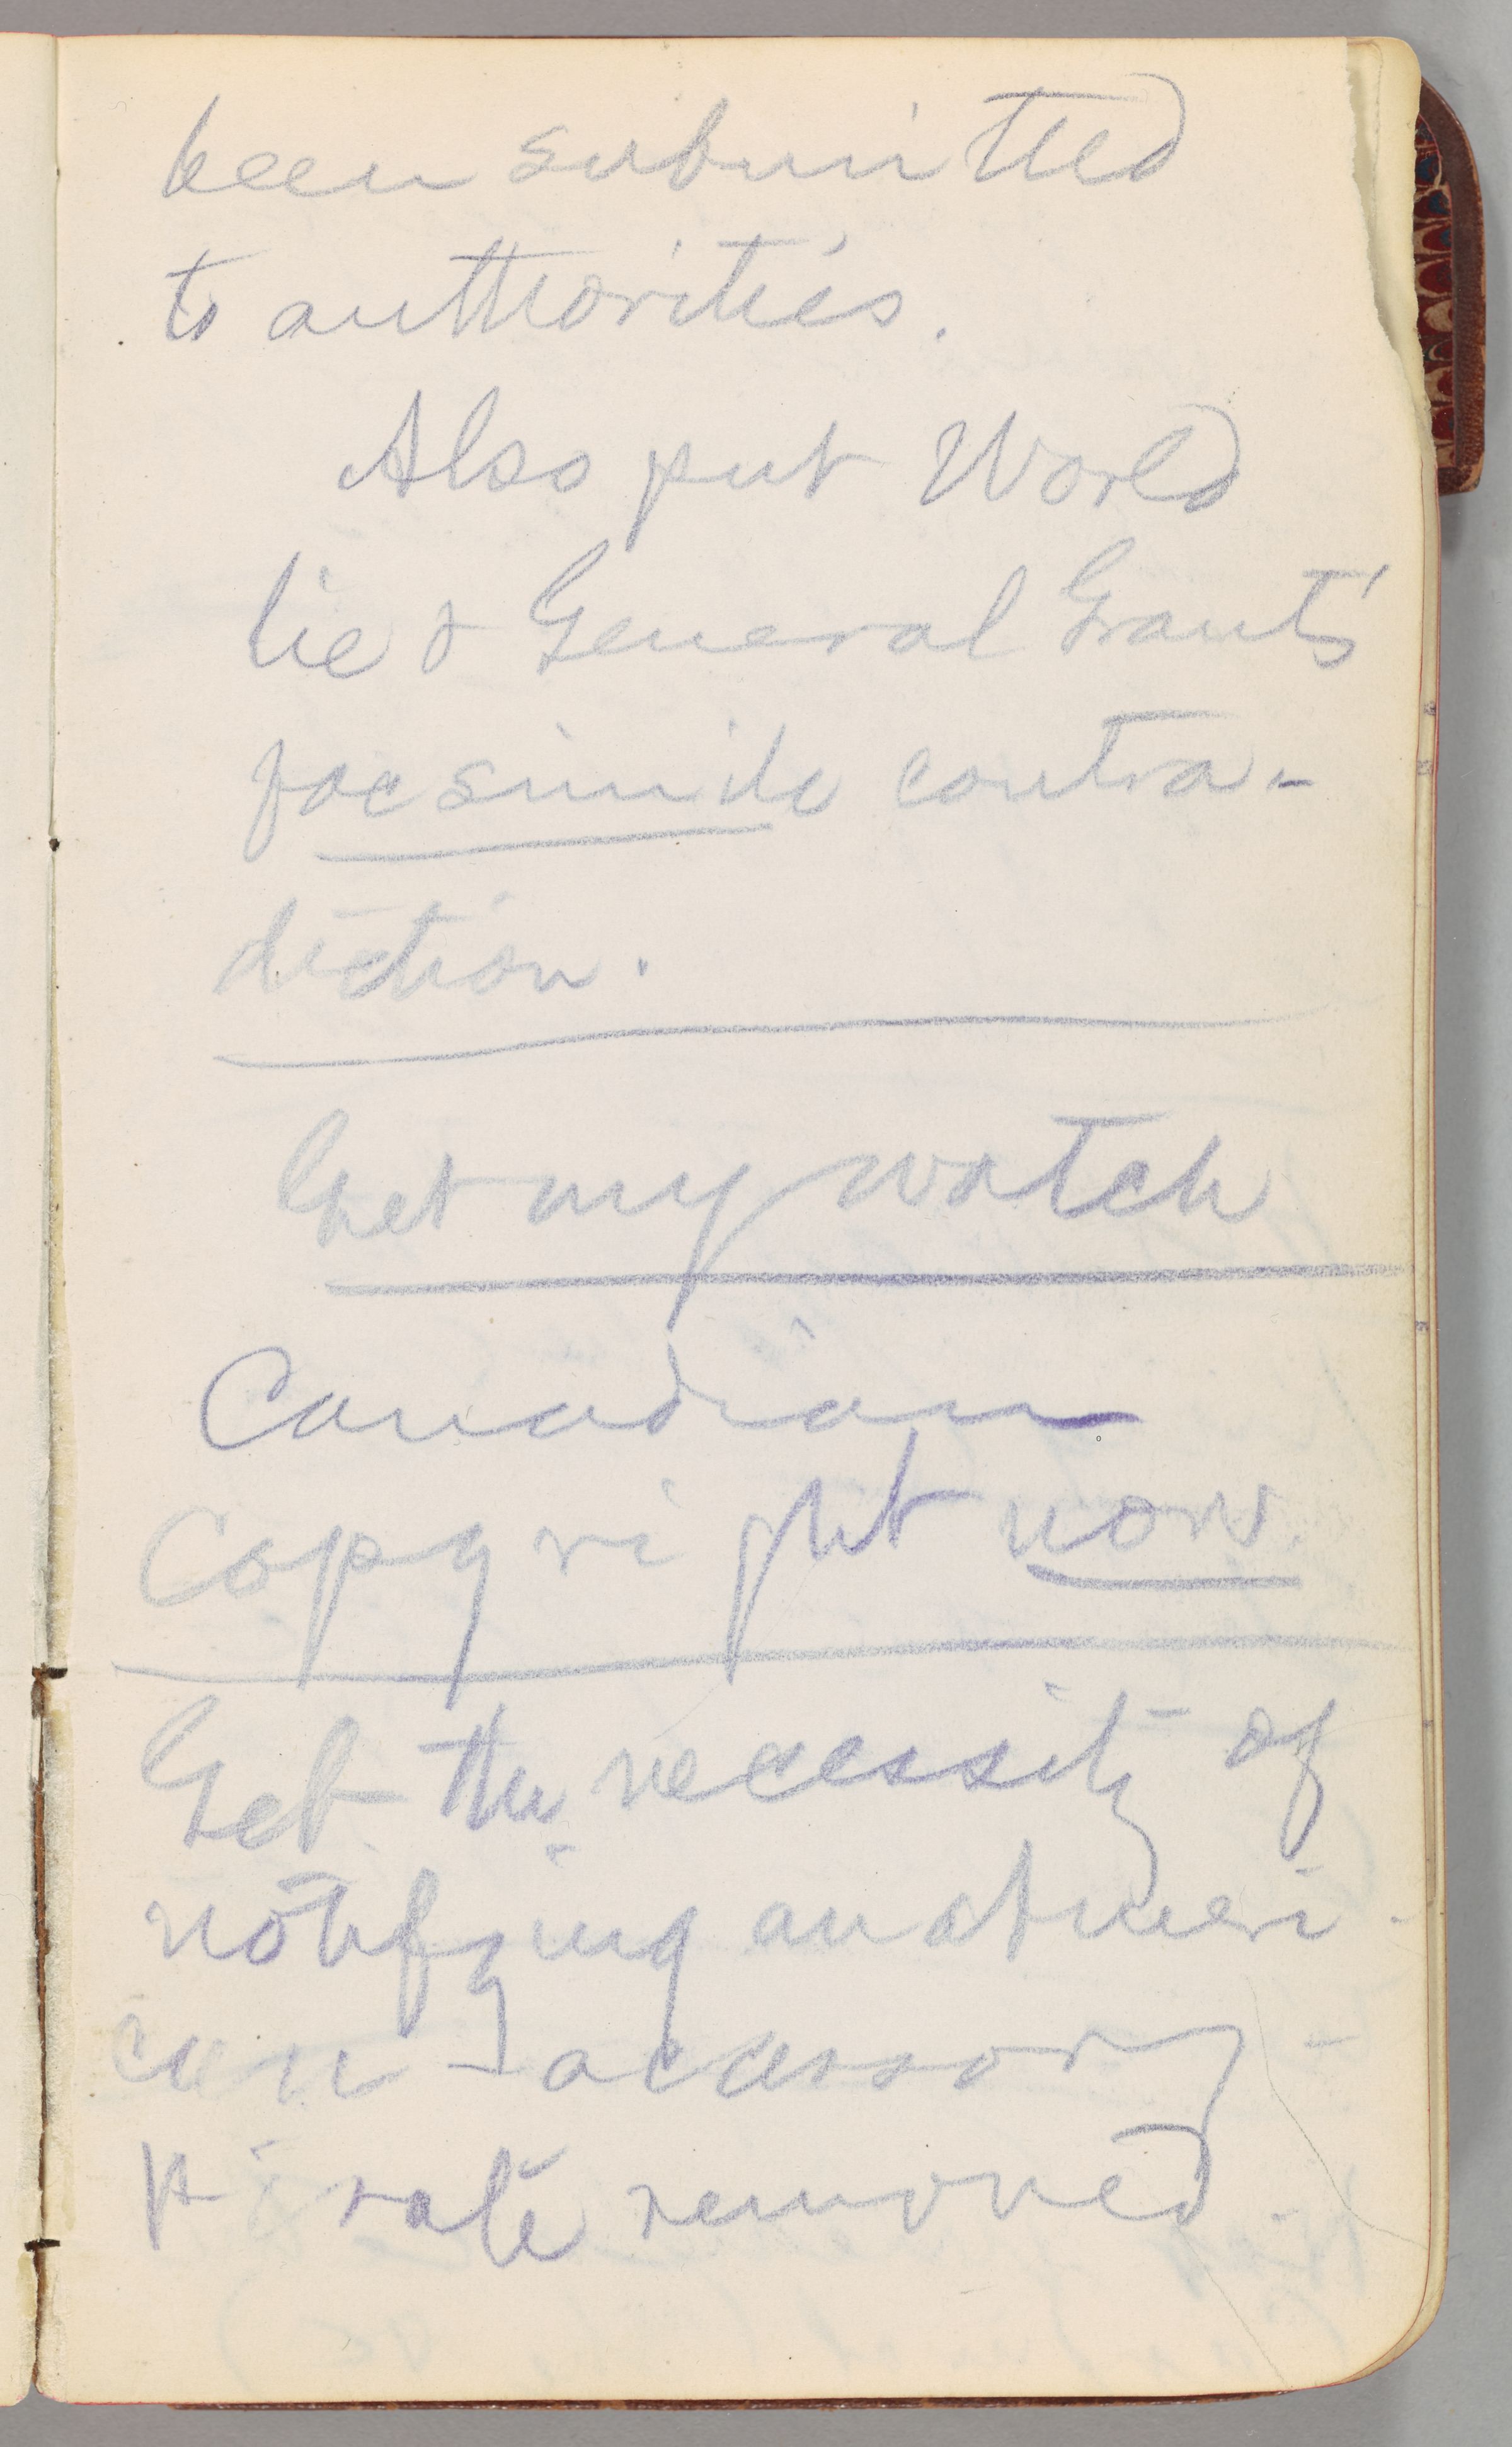 been submitted
to authorities.
Also put World
lie & General Grant's
facsimile contra-
diction.
Get my watch
Canadian
Copyright now.
Get the necessity of
notifying an Ameri-
can accessory-
pirate removed.